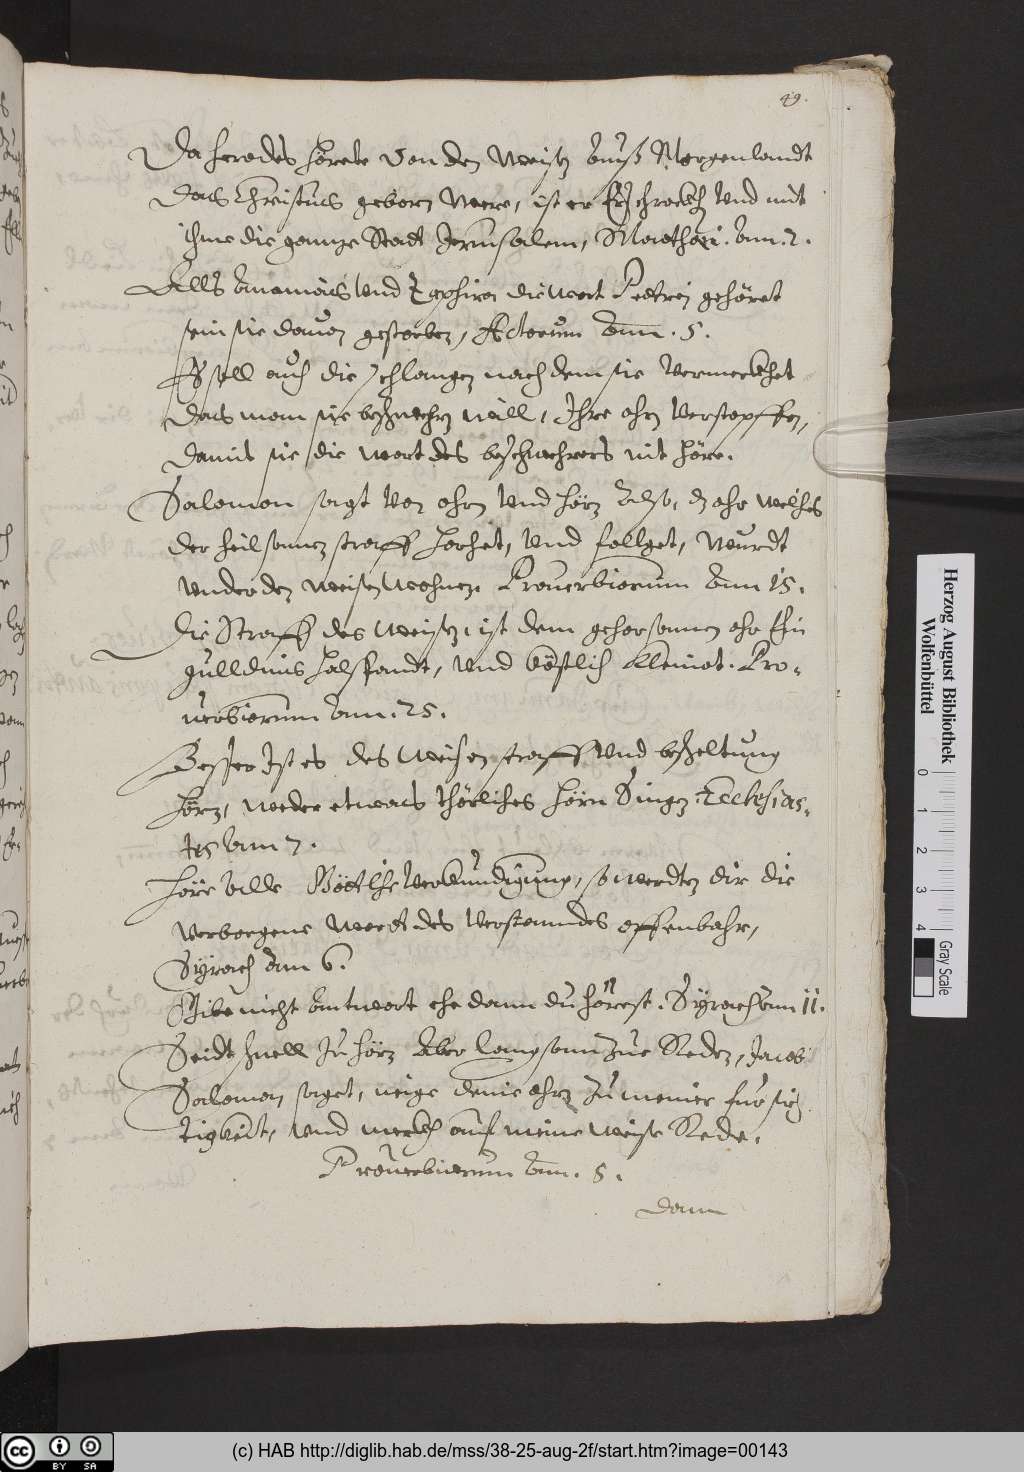 49.
Da herodes hörete Von den Weisen auß Morgenlandt
Das Christus geborn Were, ist er Erschrockh Vnd mit
ihme die gannze Stadt Jerusalem, Mathaei. am. 2.
Alls Ananias Vnd Zaphira die wort Petri gehöret
sein sie dauon gestorben, Actorum am. 5.
Es soll auch die schlangen nach dem sie Vermerckhet
das man sie beschwehrn will, Ihre ohrn Verstopffen,
damit sie die wort des beschwehrers nit höre.
Salomon sagt Von ohrn Vnd hörn also, dz ohr welches
der heilsamen straff horchet, Vnd follget, Wurdt
Vnder den weisen wohnen. Prouerbiorum am 15.
Die Straff des Weisen, ist dem gehorsamen ohr Ein
gulldins halspandt, Vnd köstlich kleinot. Pro-
uerbiorum am. 25.
Besser Ist es des Weisen straff Vnd bescheltung
hörn, weder etwas thörliches hörn Singen. Ecclesias-
tes am 7.
höre alle Göttlche Verkündigung, so werden dir die
verborgene wort des Verstanndes offenbahr,
Syrach am 6.
Gibe nicht Antwort ehe dann du hörest. Syrach am 11.
Seidt schnell Zu hörn Aber langsam Zue Reden, Jacob
Salomon saget, neige deine ohrn Zu meiner fürsich
tigkeit, Vnd merckh auf meine weise Rede.
Prouerbiorum am. 5.
dann
Herzog August Bibliothek
Wolfenbüttel
0 1 2 3 4
Gray Scale
cc BY SA
(c) HAB http://diglib.hab.de/mss/38-25-aug-2f/start.htm?image=00143